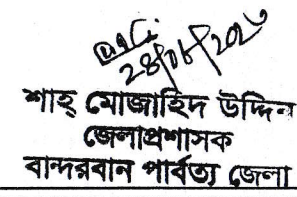 28/08/2023
শাহ্ মোজাহিদ উদ্দিন
জেলাপ্রশাসক
বান্দরবান পার্বত্য জেলা